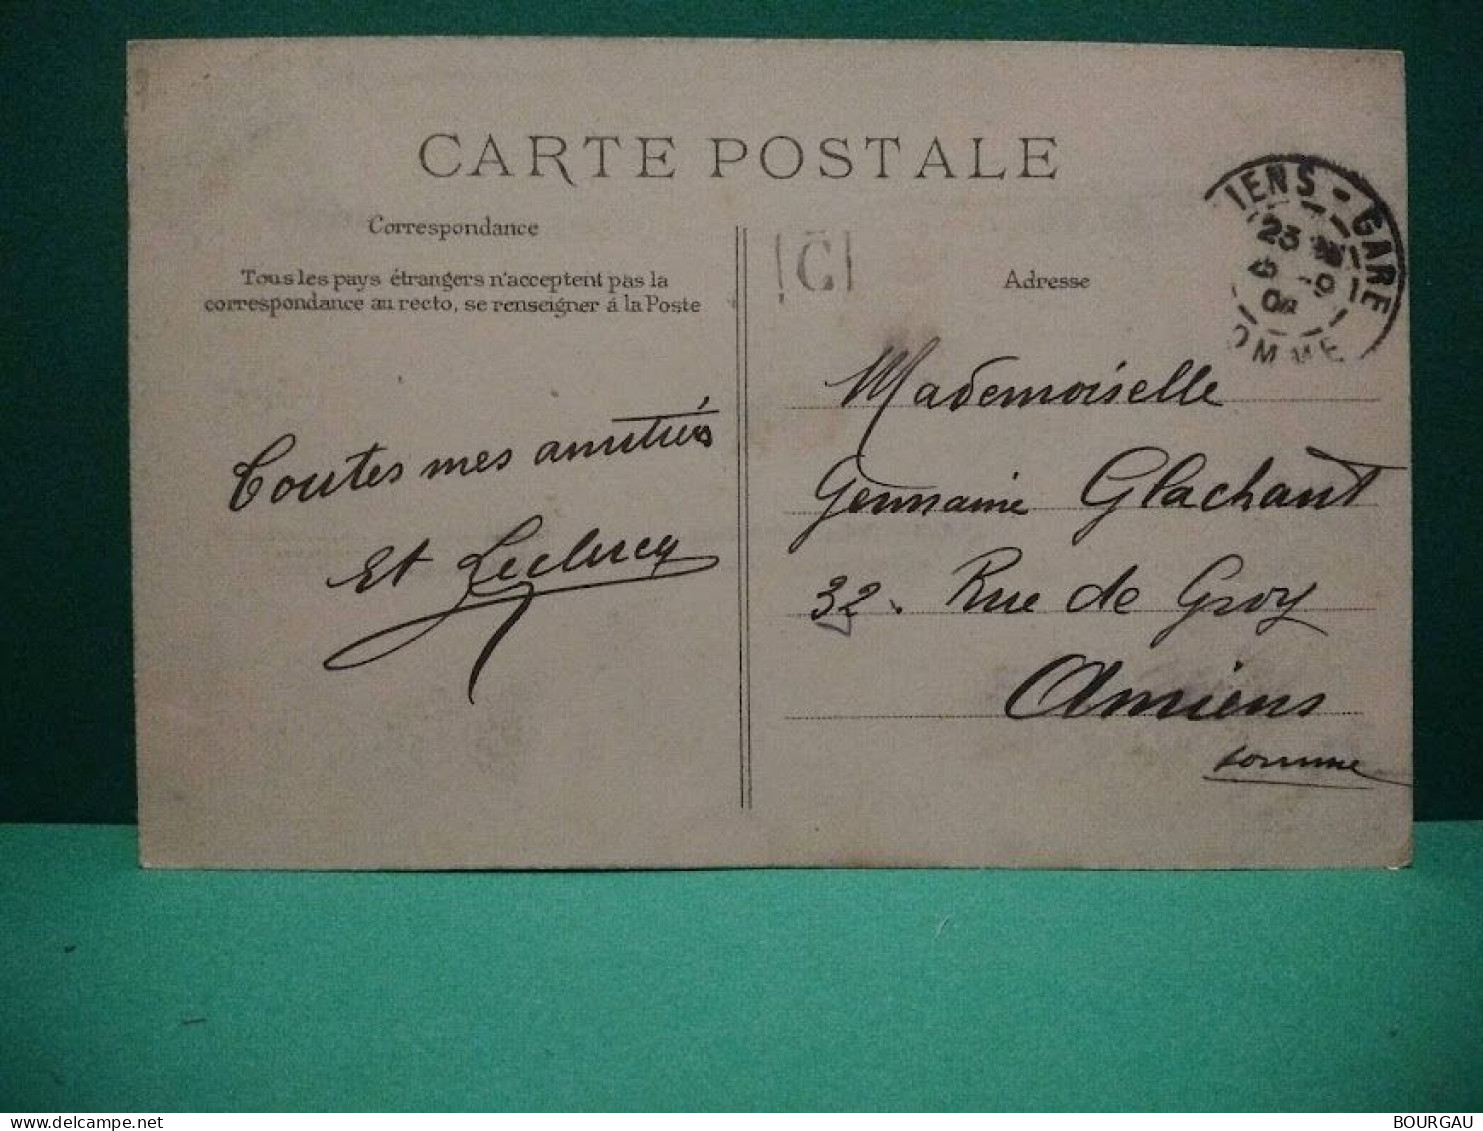 CARTE POSTALE
Correspondance
Tous les pays étrangers n'acceptent pas la
correspondance au recto, se renseigner á la Poste
Toutes mes amitiés
Et Leclercq
C
Adresse
IENS - GARE
23
OMME
Mademoiselle
Germaine Glachant
32. Rue de Groy
Amiens
somme
BOURGAU